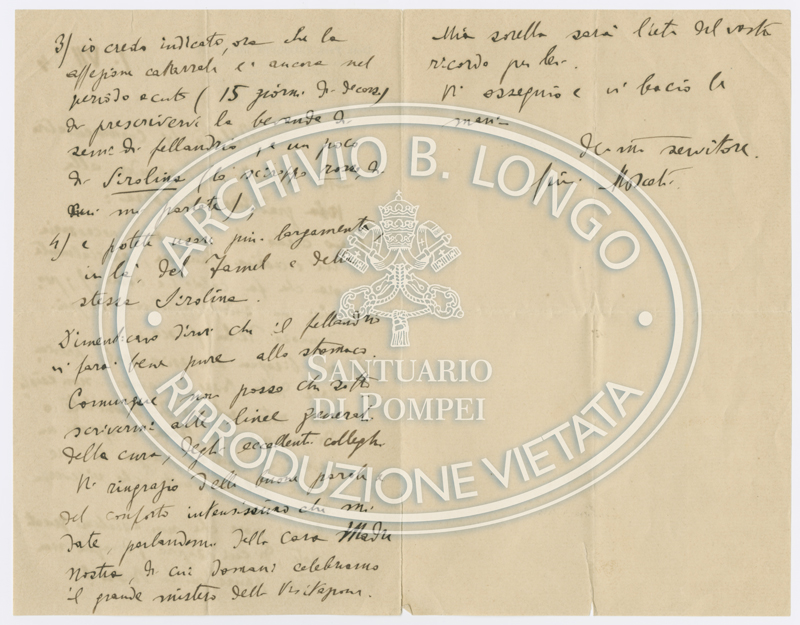 3) io credo indicato, ora che la
affezione catarrale è ancora nel
periodo acuto (15 giorni di decorso)
di prescrivervi la bevanda di
semi di fellandrio, e un poco
di Sirolina (lo sciroppo roseo di
cui mi parlate);
4) e potete usare più largamente,
in là, del Famel e della
stessa Sirolina.
Dimenticavo dirvi che il fellandrio
vi farà bene pure allo stomaco.
Comunque non posso che sotto
scrivermi alle linee generali
della cura, degli eccellenti colleghi.
Vi ringrazio delle buone parole e
del conforto intensissimo che mi
date, parlandomi della cara Madre
Nostra, di cui domani celebriamo
il grande mistero della Visitazione.
Mia sorella sarà lieta del vostro
ricordo per lei.
Vi ossequio e vi bacio le
mani
dev.mo servitore
Giu. Moscati
ARCHIVIO B. LONGO
SANTUARIO
DI POMPEI
RIPRODUZIONE VIETATA